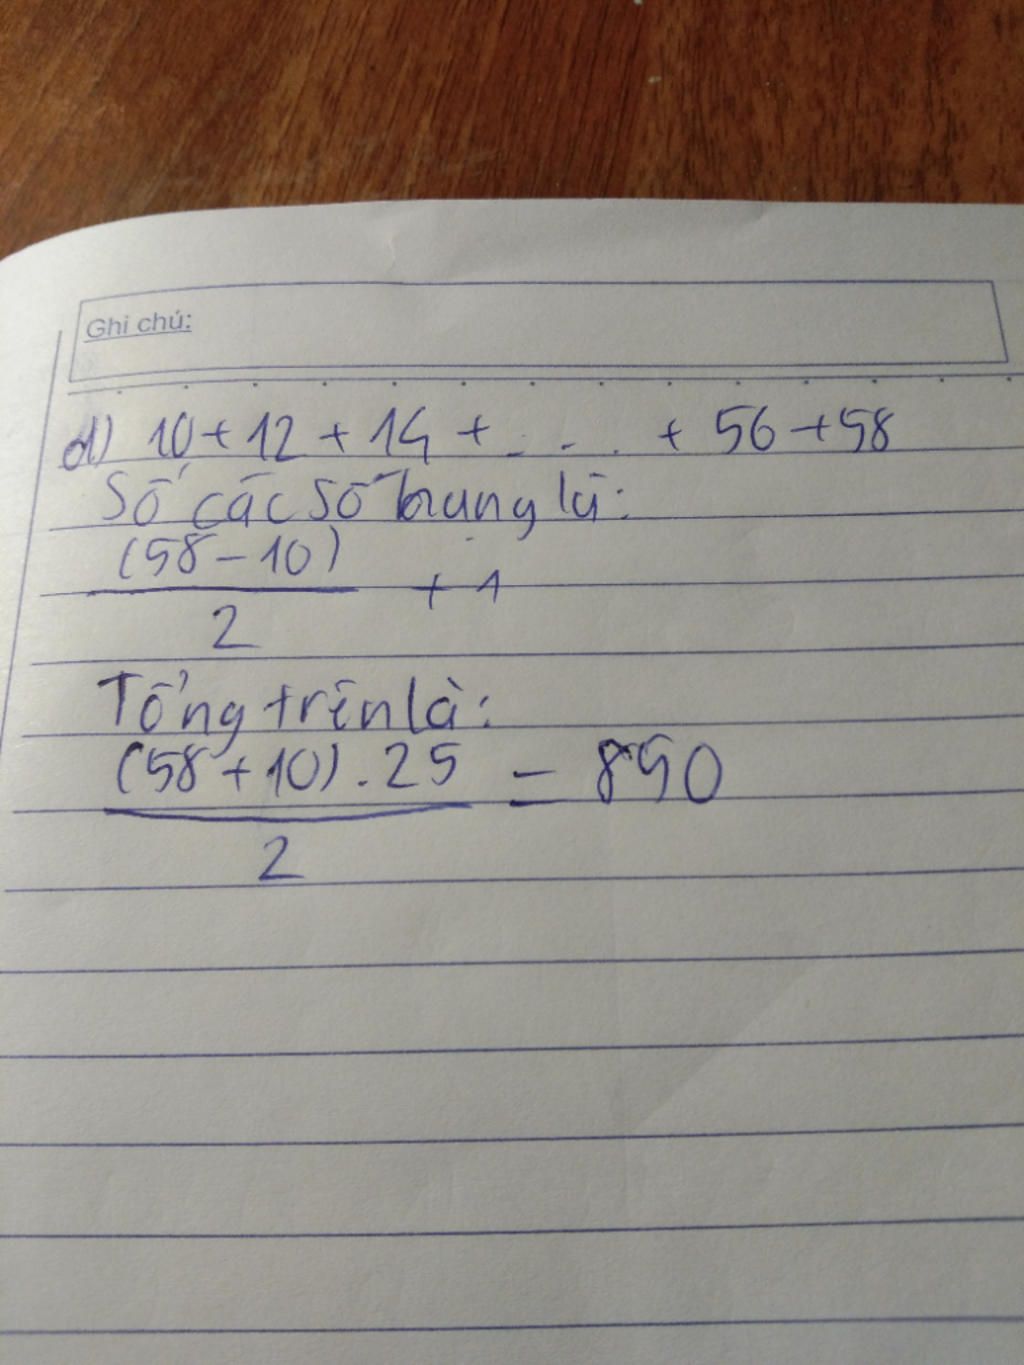 Ghi chú:
d) 10 + 12 + 14 + . . . + 56 + 58
Số các số hạng là:
(58 - 10)
+ 1
2
Tổng trên là:
(58 + 10) . 25 = 850
2